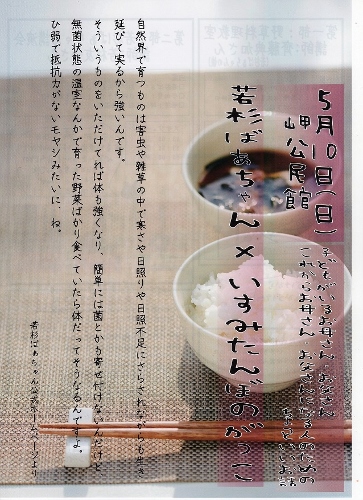 5月10日(日)
岬公民館
子どもがいるお母さん・お父さん
これからお母さん・お父さんになる人のための
ちょっといいお話
若杉ばあちゃん×いすみたんぼのがっこ
自然界で育つものは害虫や雑草の中で寒さや日照りや日照不足にさらされながらも生き
延びて実るから強いんです。
そういうものをいただいてれば体も強くなり、簡単には菌とかも寄せ付けないんだけど
無菌状態の温室なんかで育った野菜ばかり食べていたら体だってそうなるんですよ。
ひ弱で抵抗力がないモヤシみたいに、ね。
若杉ばあちゃん公式ホームページより